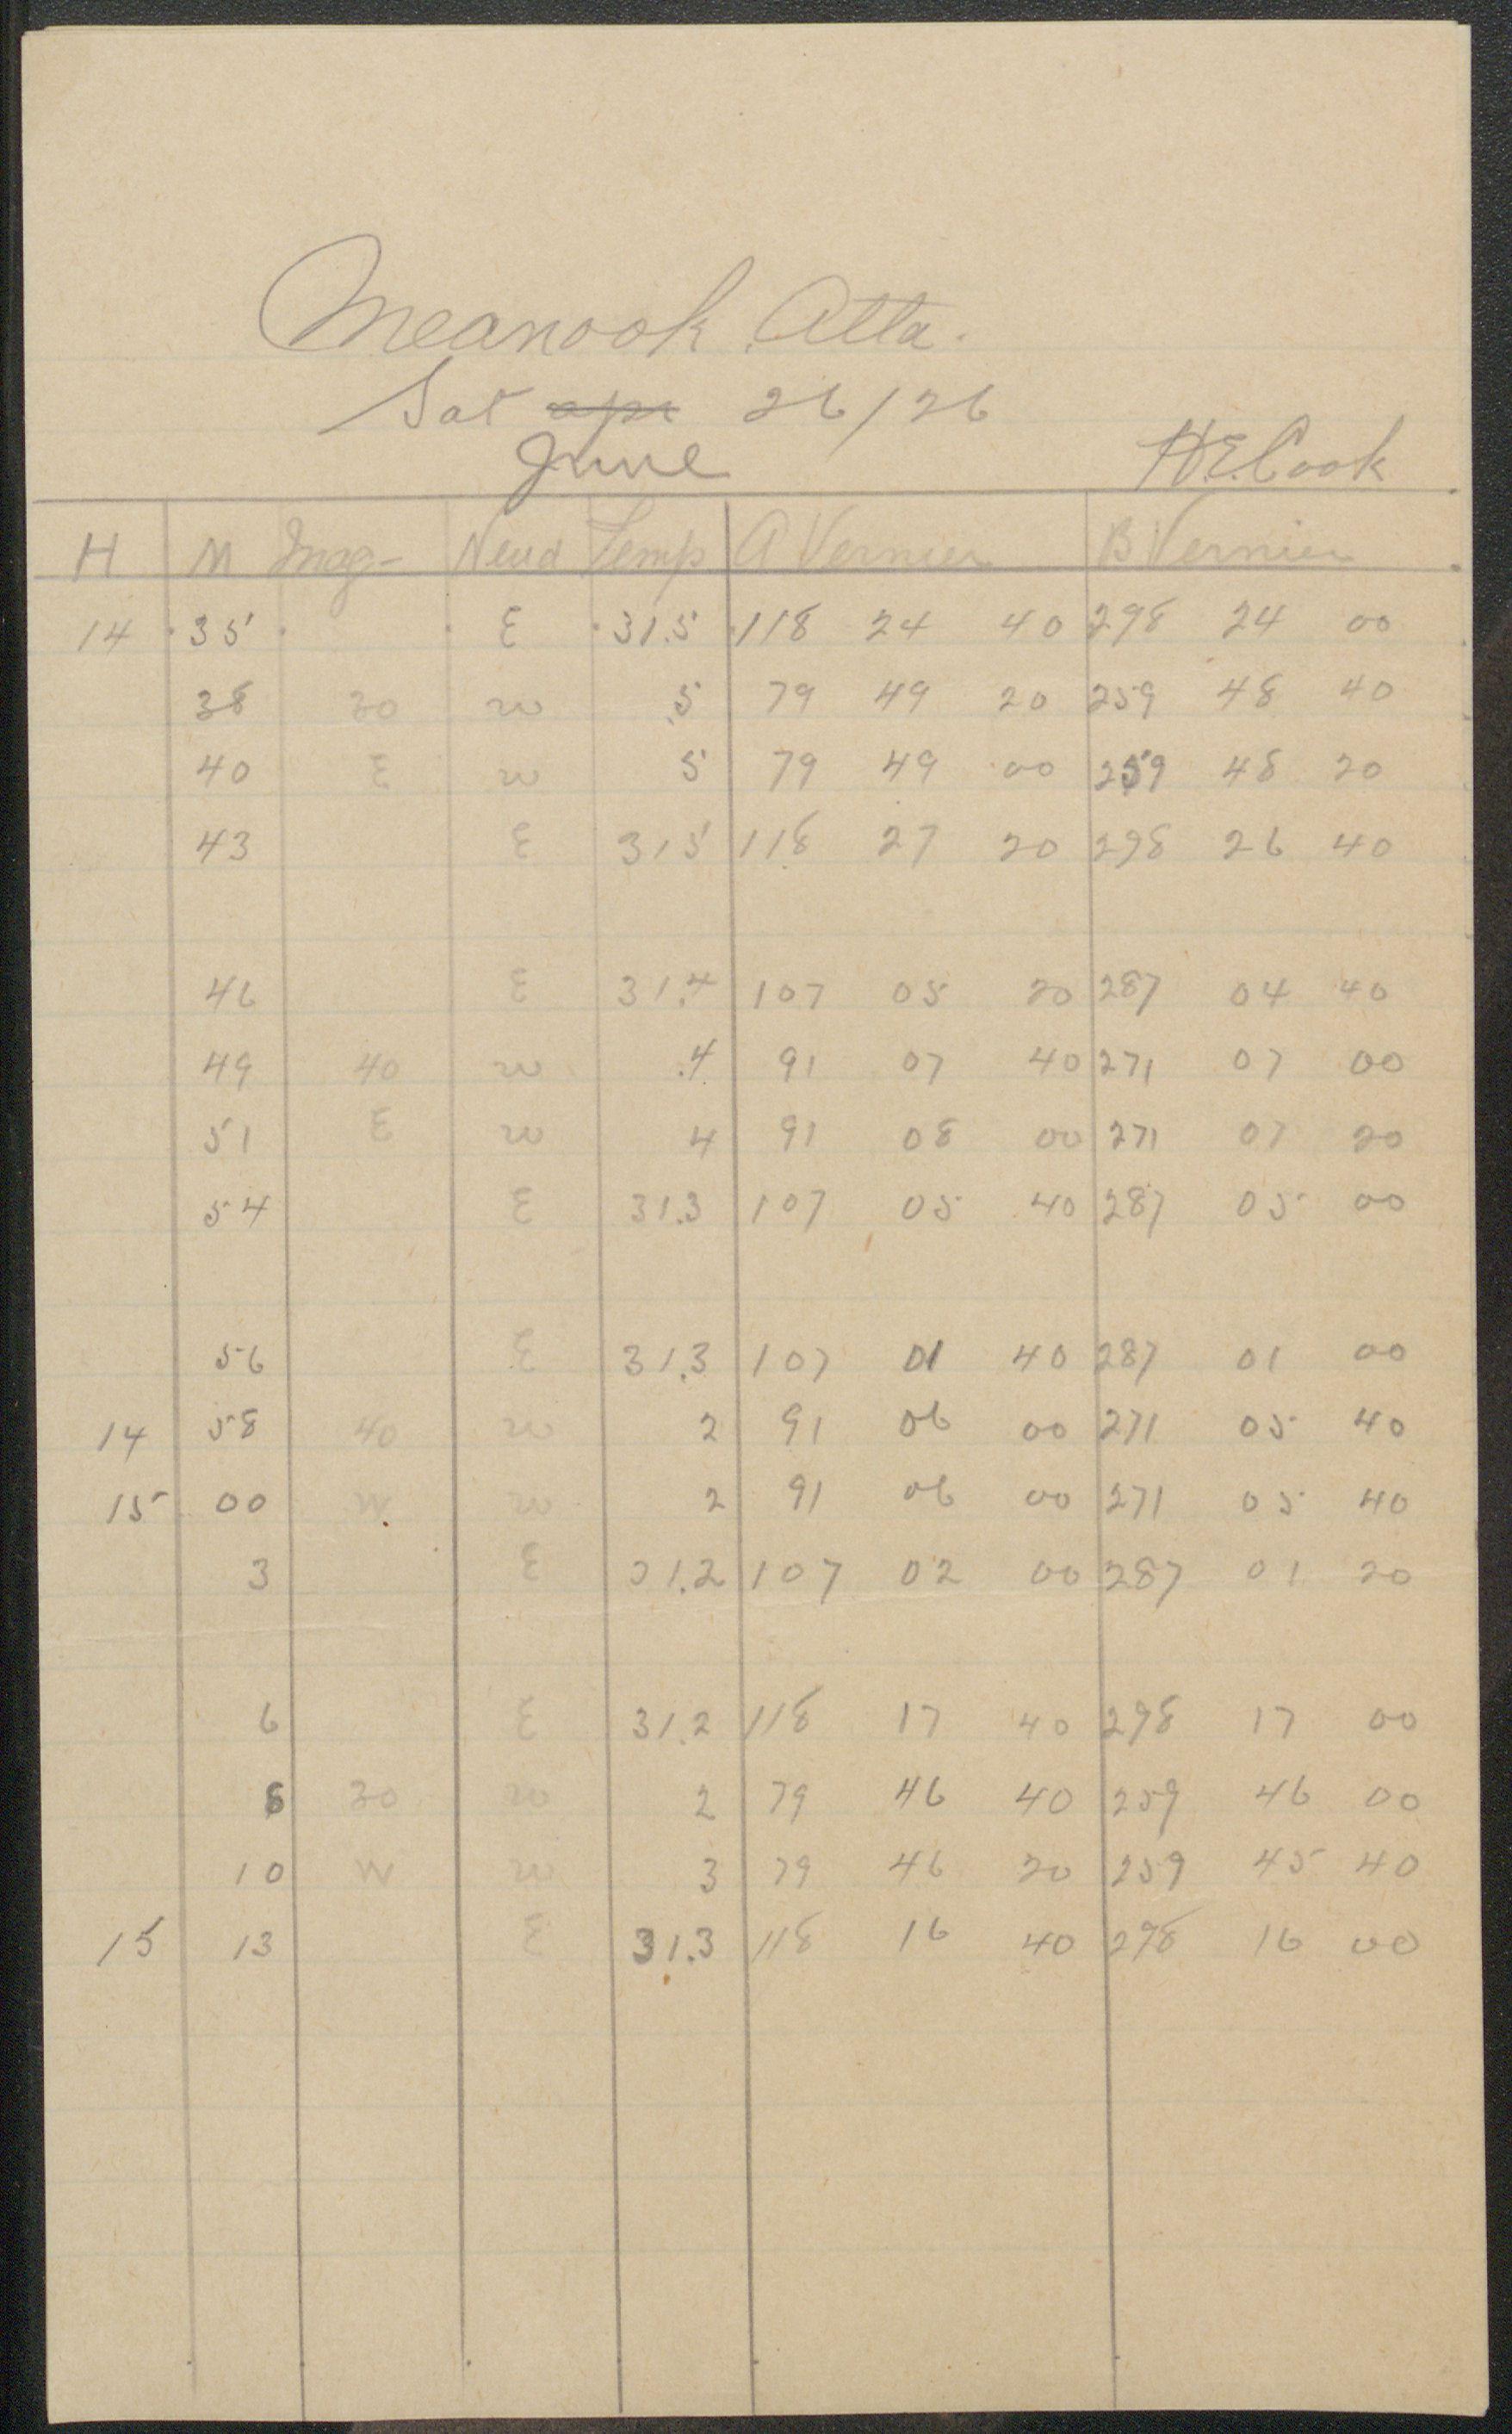 Meanook, Alta.
Sat apr 26/26
June
H.E. Cook
H M Mag- Nend Temp A Vernier B Vernier
14 35 E 31.5 118 24 40 298 24 00
38 30 w .5 79 49 20 259 48 40
40 E w 5 79 49 00 259 48 20
43 E 31 5 118 27 20 298 26 40
46 E 31.4 107 05 20 287 04 40
49 40 w .4 91 07 40 271 07 00
51 E w 4 91 08 00 271 07 20
54 E 31.3 107 05 40 287 05 00
56 E 31.3 107 01 40 287 01 00
14 58 40 w 2 91 06 00 271 05 40
15 00 W w 2 91 06 00 271 05 40
3 E 31.2 107 02 00 287 01 20
6 E 31.2 118 17 40 298 17 00
8 30 w 2 79 46 40 259 46 00
10 W w 3 79 46 20 259 45 40
15 13 E 31.3 118 16 40 298 16 00